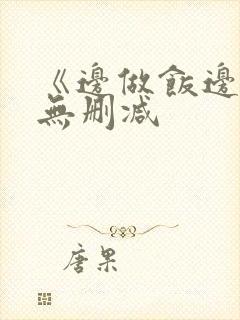 《邊做飯邊
無刪減
唐果